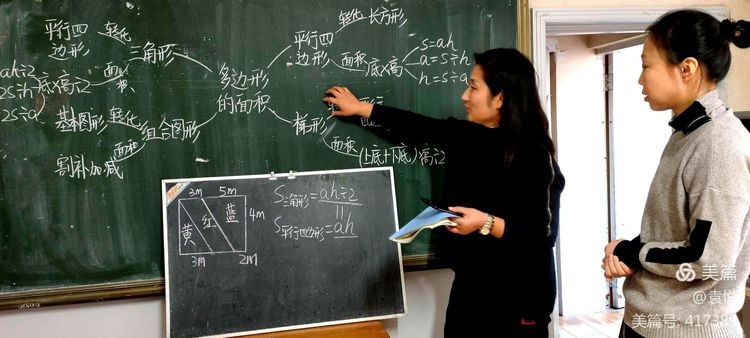 平行四
边形
转化
三角形
面积
底×高÷2
ah÷2
2S÷h
2S÷a
基本图形
转化
组合图形
面积
割补加减
多边形
的面积
平行四
边形
转化
长方形
面积
底×高
s=ah
a=s÷h
h=s÷a
梯形
面积
(上底+下底)×高÷2
3m 5m
黄 红 蓝
4m
3m 2m
S三角形=ah÷2
S平行四边形=ah
美篇
@袁
美篇号: 4173